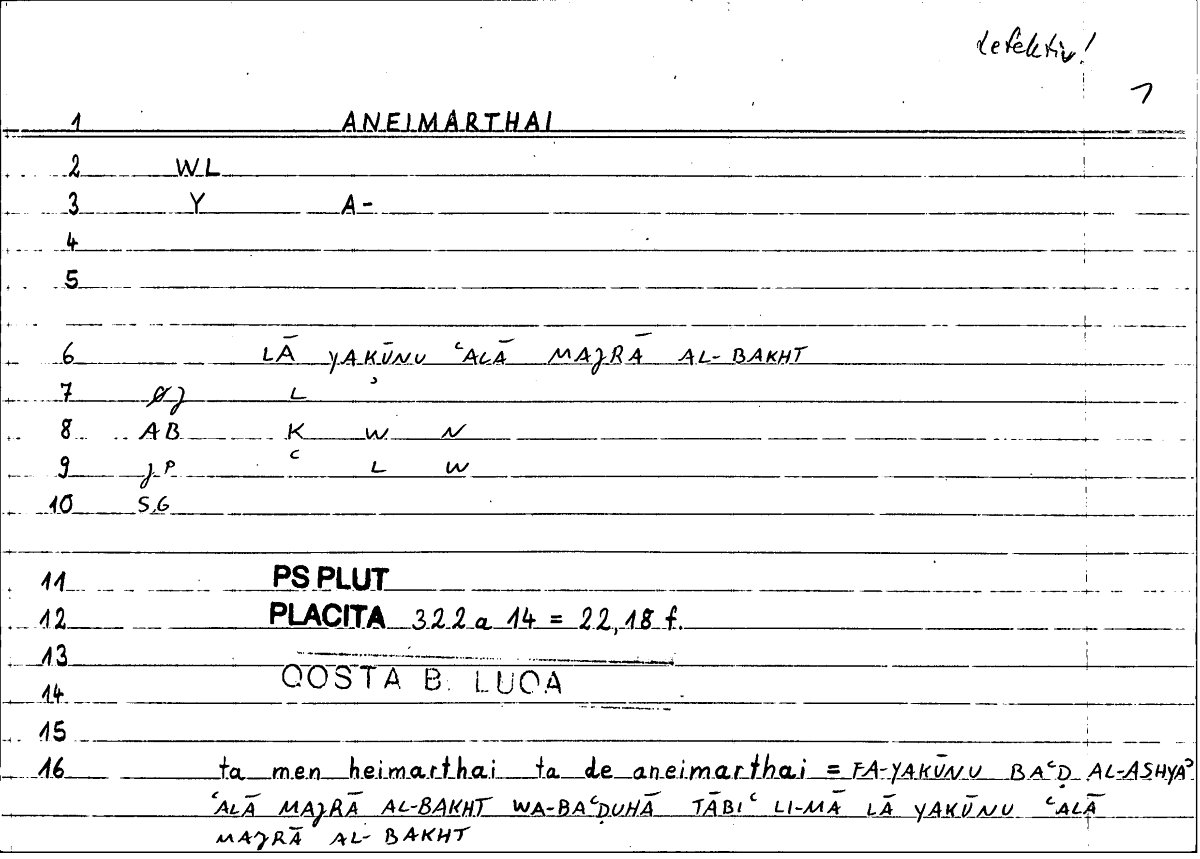 defektiv!
1 ANEIMARTHAI
2 WL
3 Y A-
4
5
6 LĀ YAKŪNU ʿALĀ MAJRĀ AL-BAKHT
7 ØJ L ʾ
8 AB K W N
9 JP ʿ L W
10 S,G
11 PS PLUT
12 PLACITA 322a 14 = 22,18 f.
13
QOSTA B. LUQA
14
15
16 ta men heimarthai ta de aneimarthai = FA-YAKŪNU BAʿḌ AL-ASHYĀʾ
ʿALĀ MAJRĀ AL-BAKHT WA-BAʿḌUHĀ TĀBIʿ LI-MĀ LĀ YAKŪNU ʿALĀ
MAJRĀ AL-BAKHT